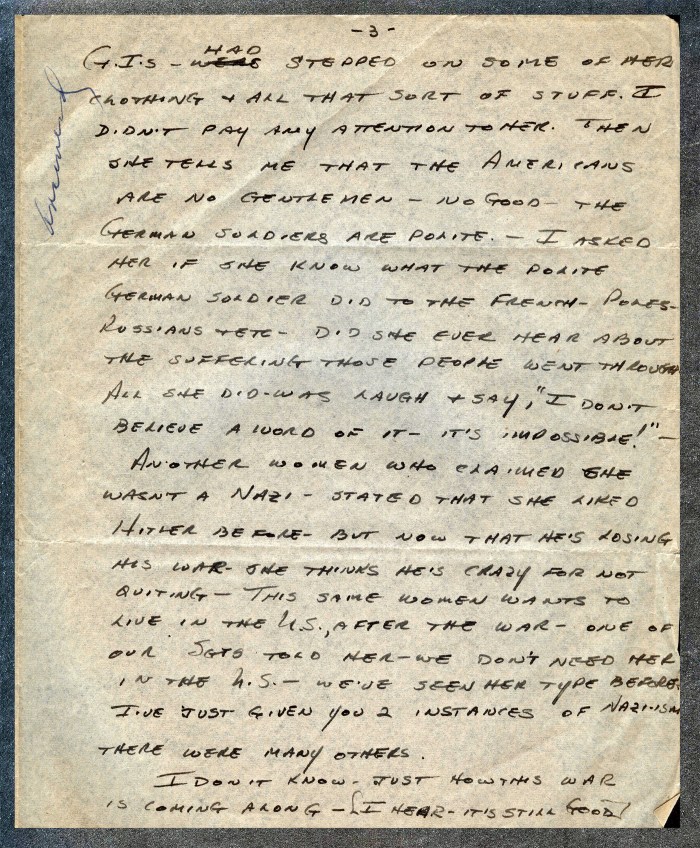 -3-
HAD
G.I.S - WERE STEPPED ON SOME OF HER
CLOTHING & ALL THAT SORT OF STUFF. I
DIDN'T PAY ANY ATTENTION TO HER. THEN
SHE TELLS ME THAT THE AMERICANS
ARE NO GENTLEMEN - NO GOOD - THE
GERMAN SOLDIERS ARE POLITE. - I ASKED
HER IF SHE KNOW WHAT THE POLITE
GERMAN SOLDIER DID TO THE FRENCH - POLES -
RUSSIANS & ETC - DID SHE EVER HEAR ABOUT
THE SUFFERING THOSE PEOPLE WENT THROUGH
ALL SHE DID - WAS LAUGH & SAY, "I DON'T
BELIEVE A WORD OF IT - IT'S IMPOSSIBLE!" -
ANOTHER WOMEN WHO CLAIMED SHE
WASN'T A NAZI - STATED THAT SHE LIKED
HITLER BEFORE - BUT NOW THAT HE'S LOSING
HIS WAR - SHE THINKS HE'S CRAZY FOR NOT
QUITING - THIS SAME WOMEN WANTS TO
LIVE IN THE U.S., AFTER THE WAR - ONE OF
OUR SGTS TOLD HER - WE DON'T NEED HER
IN THE U.S. - WE'VE SEEN HER TYPE BEFORE.
I'VE JUST GIVEN YOU 2 INSTANCES OF NAZI-ISM
THERE WERE MANY OTHERS.
I DON'T KNOW - JUST HOW THIS WAR
IS COMING ALONG - (I HEAR - IT'S STILL GOOD)
answered